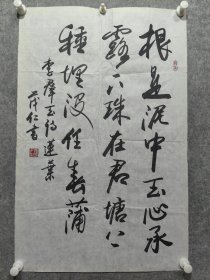 根是泥中玉心承
露下珠在君塘下
種埋没任春蒲
李群玉詩蓮葉
茂仁書